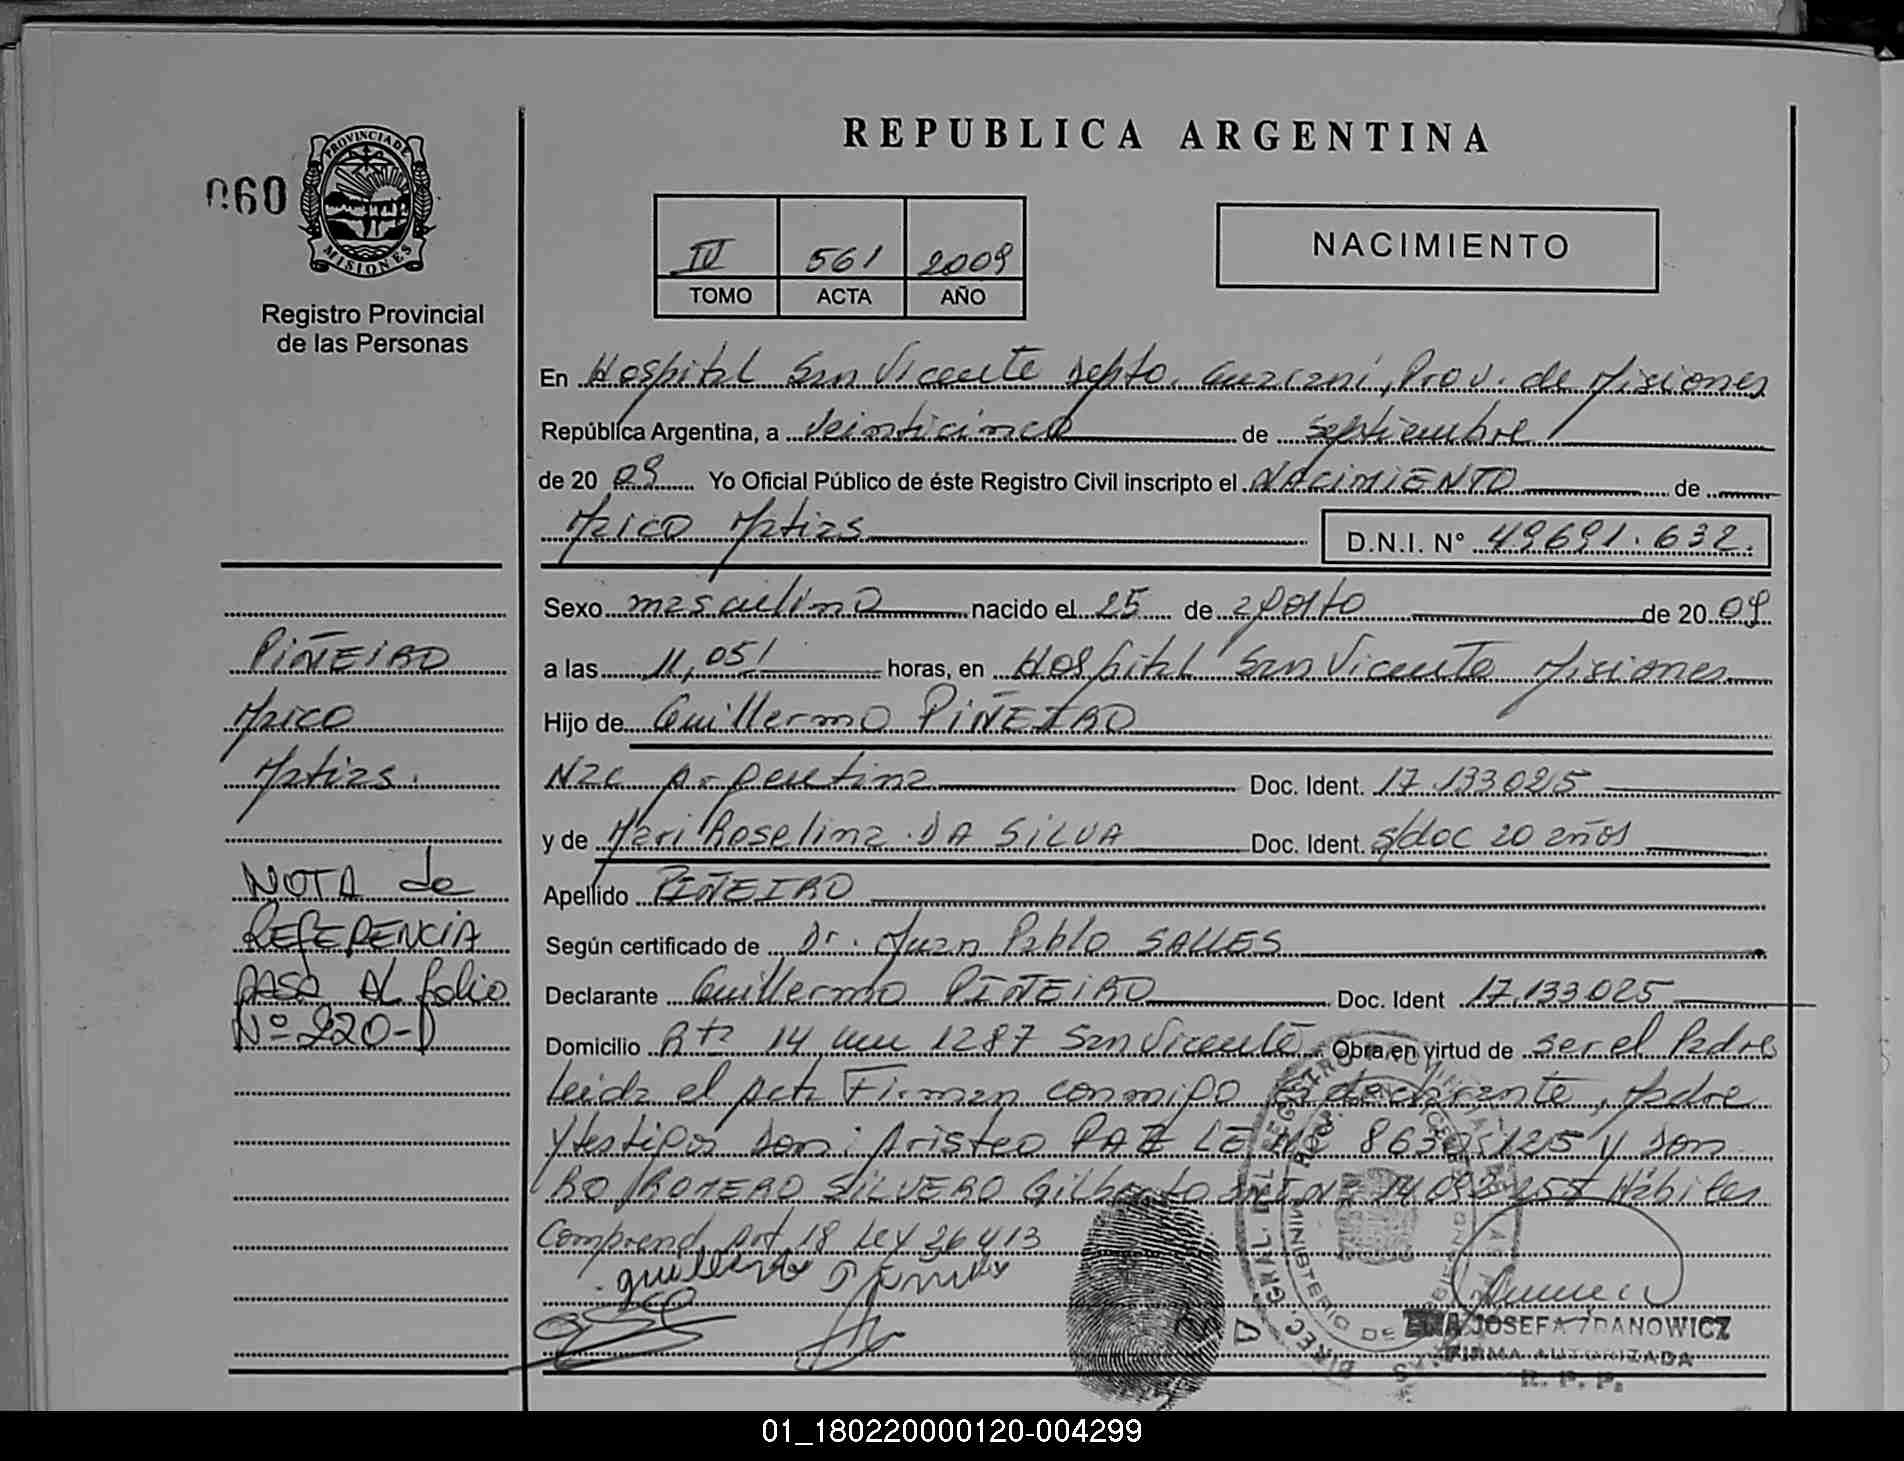 REPUBLICA ARGENTINA
060
PROVINCIA DE
MISIONES
Registro Provincial
de las Personas
IV 561 2009
TOMO ACTA AÑO
NACIMIENTO
En Hospital San Vicente Depto. Guaraní, Prov. de Misiones
República Argentina, a veinticinco de septiembre
de 20 09 Yo Oficial Público de éste Registro Civil inscripto el NACIMIENTO de
Marco Matias D.N.I. N° 49691.632.
Sexo masculino nacido el 25 de agosto de 20 09
a las 11,05 horas, en Hospital San Vicente Misiones
Hijo de Guillermo PIÑEIRO
Nac Argentina Doc. Ident. 17.133025
y de Mari Roselina DA SILVA Doc. Ident. s/doc 20 años
Apellido PIÑEIRO
Según certificado de Dr. Juan Pablo SALLES
Declarante Guillermo PIÑEIRO Doc. Ident 17.133025
Domicilio Rta 14 1287 San Vicente Obra en virtud de ser el Padre
leida el acta Firman conmigo declarante, Madre
y testigos Don: Aristeo PAZ LE Nº 8630.125 y Don
ROMERO SILVERO Gilberto Hábiles
Comprend Art 18 Ley 26413
PIÑEIRO
Marco
Matias.
NOTA de
REFERENCIA
PASA AL folio
Nº 220-D
JOSEFA ZDANOWICZ
FIRMA AUTORIZADA
R. P. P.
01_180220000120-004299